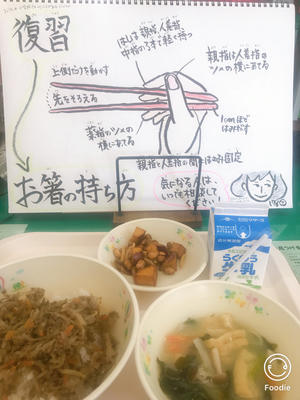 復習
はしは親指、人差指、
中指の3本で軽く持つ
上側だけを動かす
先をそろえる
親指は人差指の
ツメの横にあてる
薬指のツメの
横にあてる
1cmほど
はみだす
親指と人差指の間ははし固定
お箸の持ち方
気になる人は
いつでも相談して
ください!
牛乳
Foodie